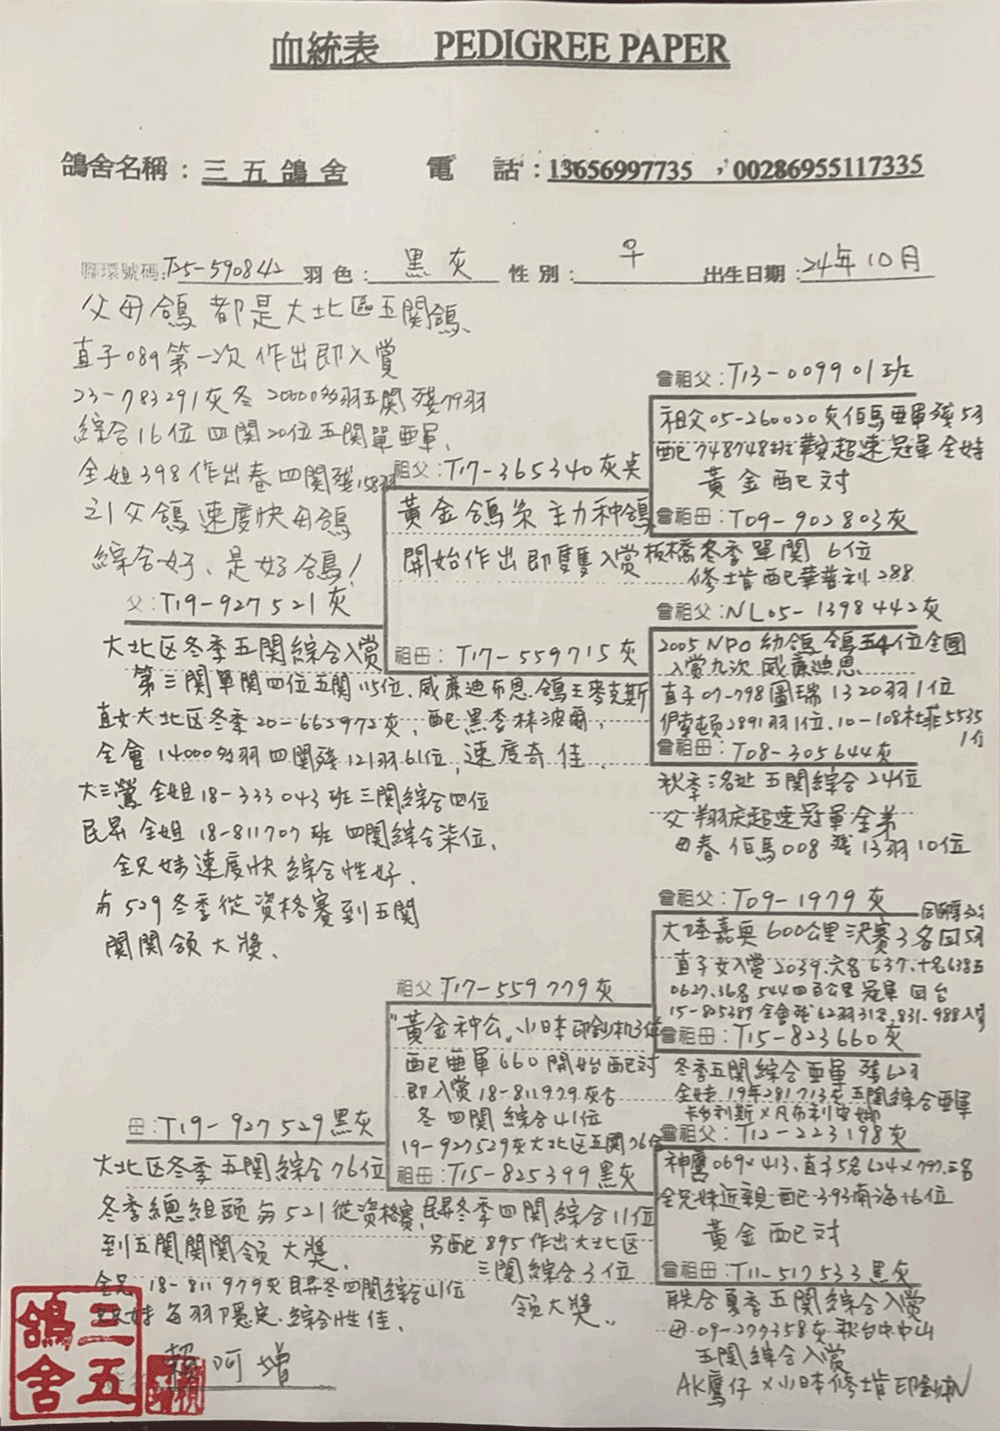 血統表 PEDIGREE PAPER
鴿舍名稱：三五鴿舍 電 話：13656997735 ，00286955117335
腳環號碼：T25-590842 羽色：黑灰 性別：♀ 出生日期：24年10月
父母鴿都是大北區五関鴿、
直子089第一次作出即入賞
23-783291灰冬 20000多羽五関殘79羽
綜合16位四関20位五関單亞軍.
全姐398作出春四関殘158羽
之1父鴿速度快母鴿
綜合好、是好鴿！
父：T19-927521灰
大北区冬季五関綜合入賞
第三関單関四位五関115位.威廉迪布恩.鴿王麥克斯
直女大北区冬季20-662972灰，配黑李林波爾，
全會14000多羽四関殘121羽61位，速度奇佳.
大三鶯全姐18-333043班三関綜合四位
民昇全姐18-811707班四関綜合柒位.
全兄妹速度快綜合性好.
與529冬季從資格賽到五関
関関領大獎.
祖父：T17-365340灰
黃金鴿系主力种鴿
開始作出即雙雙入賞板橋冬季單関6位
祖母：T17-559715灰
曾祖父：T13-009901班
祖父05-260020灰佰馬亞軍殘5羽
配748748班 超速冠軍全妹
黃金配对
曾祖母：T09-902803灰
修士肯配華普利288
曾祖父：NL05-1398442灰
2005 NPO幼鴿鴿王4位全國
入賞九次威廉迪恩
直子07-798圖瑞1320羽1位
伊索頓2891羽1位.10-108杜菲5535
1位
曾祖母：T08-305644灰
秋季 五関綜合24位
父翔 超速冠軍全弟
母春佰馬008殘13羽10位
曾祖父：T09-1979灰
大陸嘉奥600公里決賽3名回5羽
直子女入賞2039.六名637.十名638五
0627.36名544四百公里冠軍 回台
15-825389全會殘62羽31名.831.988入賞
曾祖母：T15-823660灰
冬季五関綜合亞軍殘62羽
全妹19年281713灰五関綜合亞軍
卡多利斯×凡布利安娜
祖父：T17-559779灰
"黃金种公"小日本印鈔机3位
配亞軍660開始配对
即入賞18-811979灰
冬四関綜合41位
19-927529灰大北区五関76位
祖母：T15-825399黑灰
民昇冬季四関綜合11位
另配895作出大北区
三関綜合3位
領大獎..
母：T19-927529黑灰
大北区冬季五関綜合76位
冬季總組頭與521從資格賽
到五関関関領大獎.
全兄18-811979灰民昇冬四関綜合41位
妹每羽隱定.綜合性佳.
曾祖父：T12-223198灰
神鷹069×413.直子5名624×797.三名
全兄妹近親配393南海十6位
黃金配对
曾祖母：T11-517533黑灰
聯合夏季五関綜合入賞
母09-277358灰秋台中中山
五関綜合入賞
AK鷹仔×小日本修士肯印鈔机
賴阿增
三五鴿舍